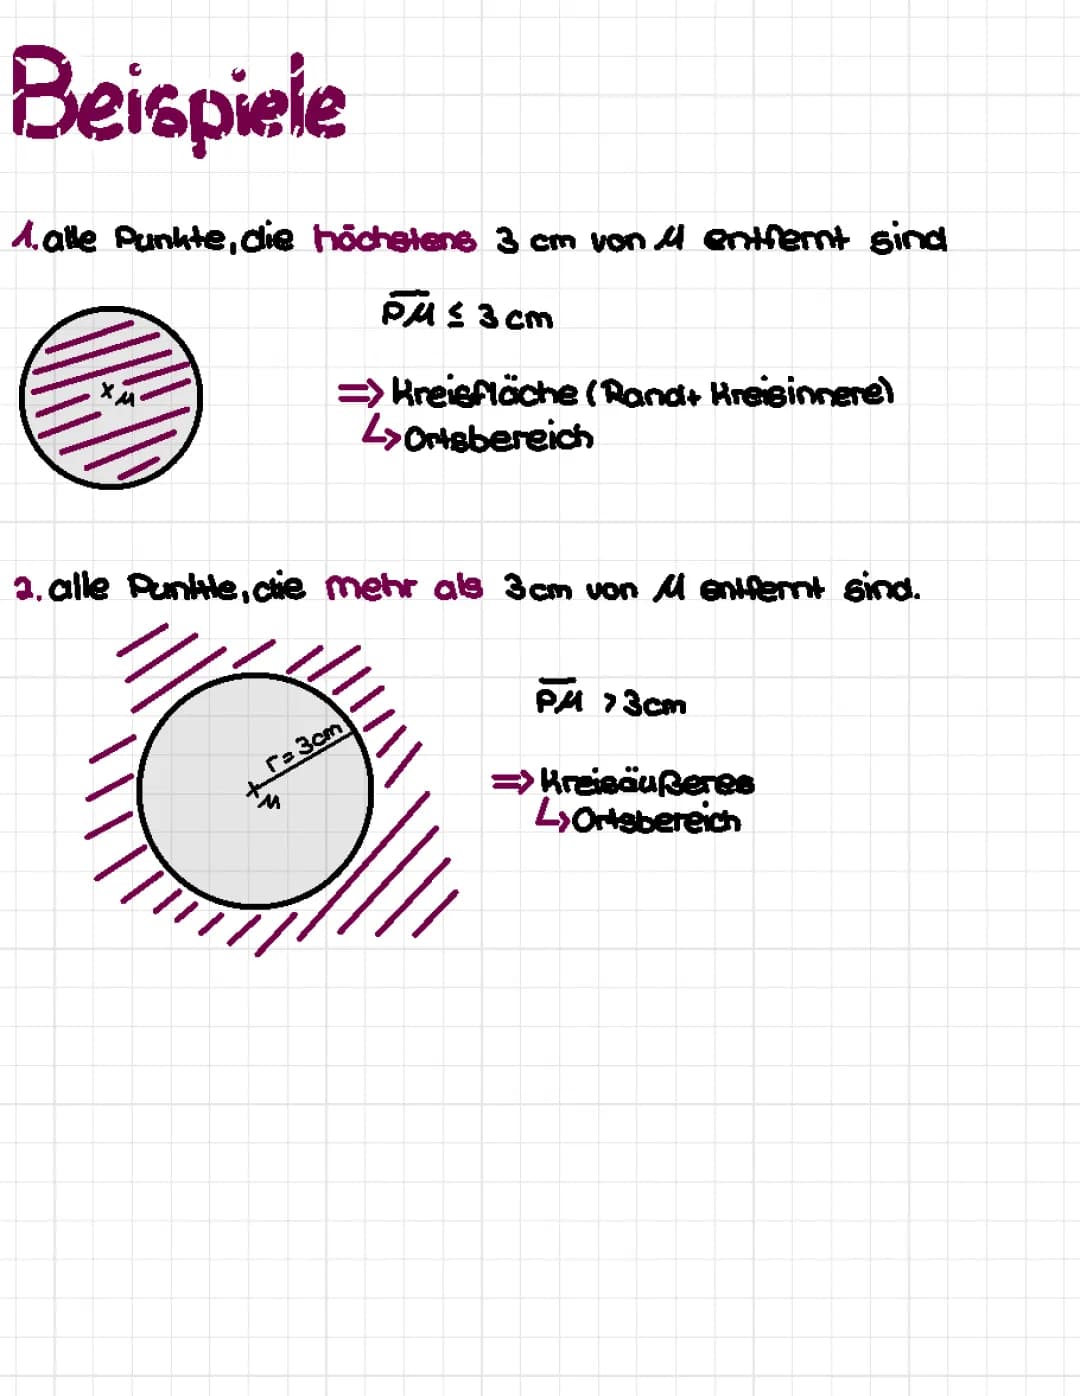 Beispiele
1. alle Punkte, die höchstens 3 cm von M entfernt sind
P̅M̅ ≤ 3 cm
x M
=> Kreisfläche (Rand + Kreisinnere)
↳ Ortsbereich
2. alle Punkte, die mehr als 3 cm von M entfernt sind.
P̅M̅ > 3 cm
r = 3 cm
x M
=> Kreisäußeres
↳ Ortsbereich